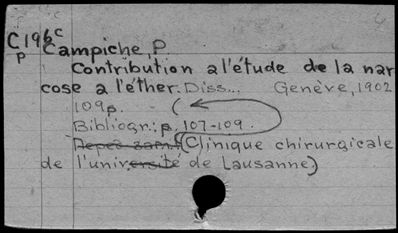 C196c
P
Campiche, P.
Contribution a l'étude de la nar
cose a l'éther. Diss... Genève, 1902
109p. (
Bibliogr.: p. 107-109.
(Clinique chirurgicale
de l'université de Lausanne)